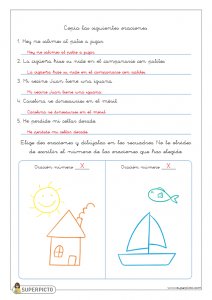 Copia las siguientes oraciones
1. Hoy no salimos al patio a jugar.
Hoy no salimos al patio a jugar
2. La cigüeña hace su nido en el campanario con palitos.
La cigüeña hace su nido en el campanario con palitos
3. Mi vecino Juan tiene una iguana.
Mi vecino Juan tiene una iguana
4. Carolina se columpiaba en el móvil.
Carolina se columpiaba en el móvil
5. He perdido mi collar dorado
He perdido mi collar dorado
Elige dos oraciones y dibújalas en los recuadros. No te olvides
de escribir el número de las oraciones que has elegido.
Oración número X
Oración número X
SUPERPICTO
www.superpicto.com